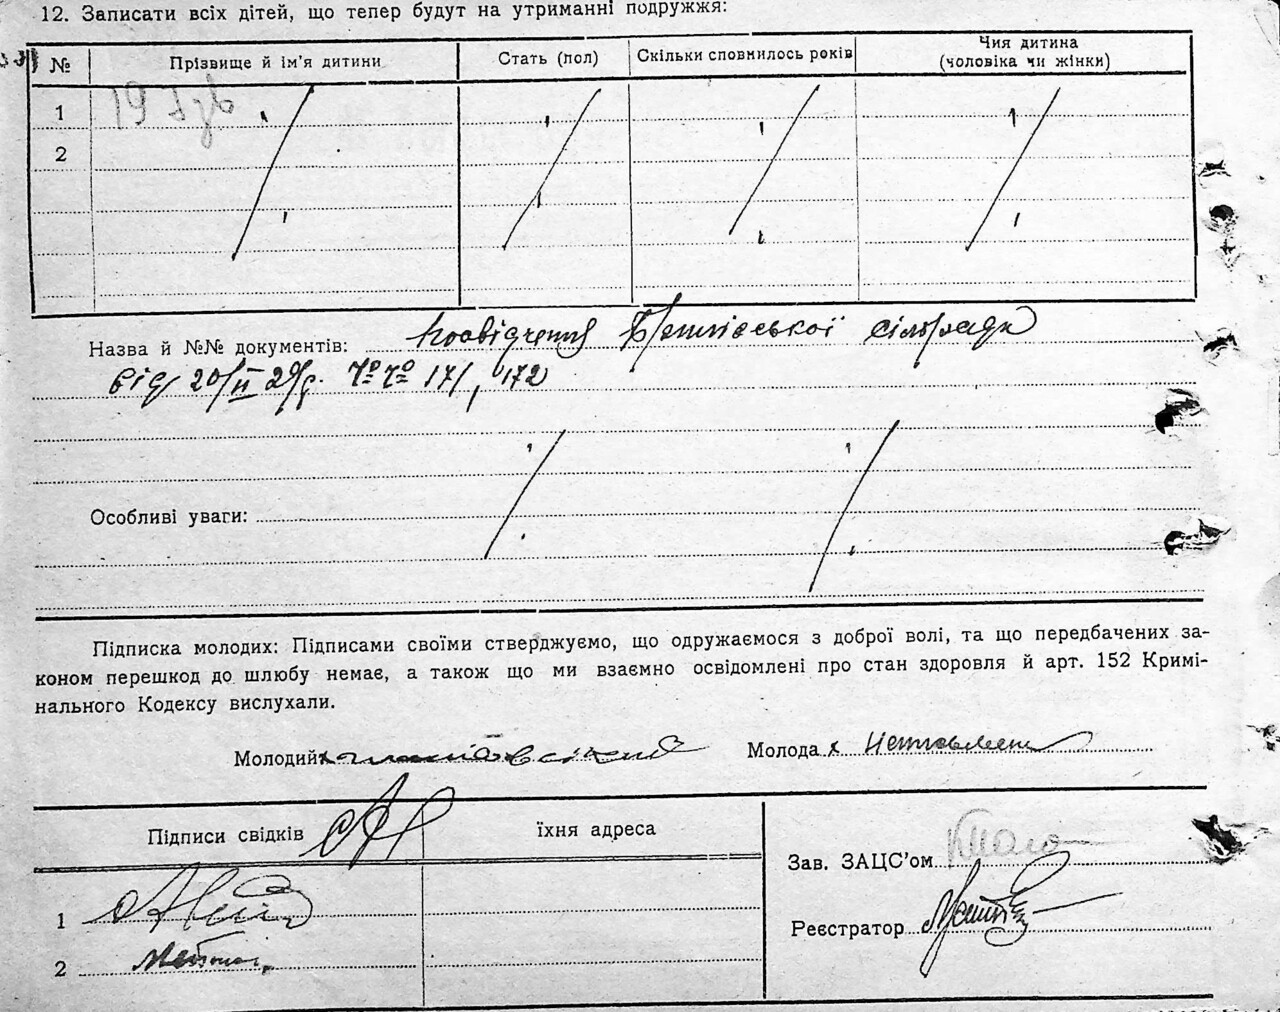 12. Записати всіх дітей, що тепер будут на утриманні подружжя:
№ Прізвище й ім'я дитини Стать (пол) Скільки сповнилось років Чия дитина (чоловіка чи жінки)
1
2
Назва й №№ документів: посвідчення сільради
від 20/II 29р. №№ 171, 172
Особливі уваги:
Підписка молодих: Підписами своїми стверджуємо, що одружаємося з доброї волі, та що передбачених за-
коном перешкод до шлюбу немає, а також що ми взаємно освідомлені про стан здоровля й арт. 152 Кримі-
нального Кодексу вислухали.
Молодий х Молода х
Підписи свідків їхня адреса
Зав. ЗАЦС'ом
1
Реєстратор
2